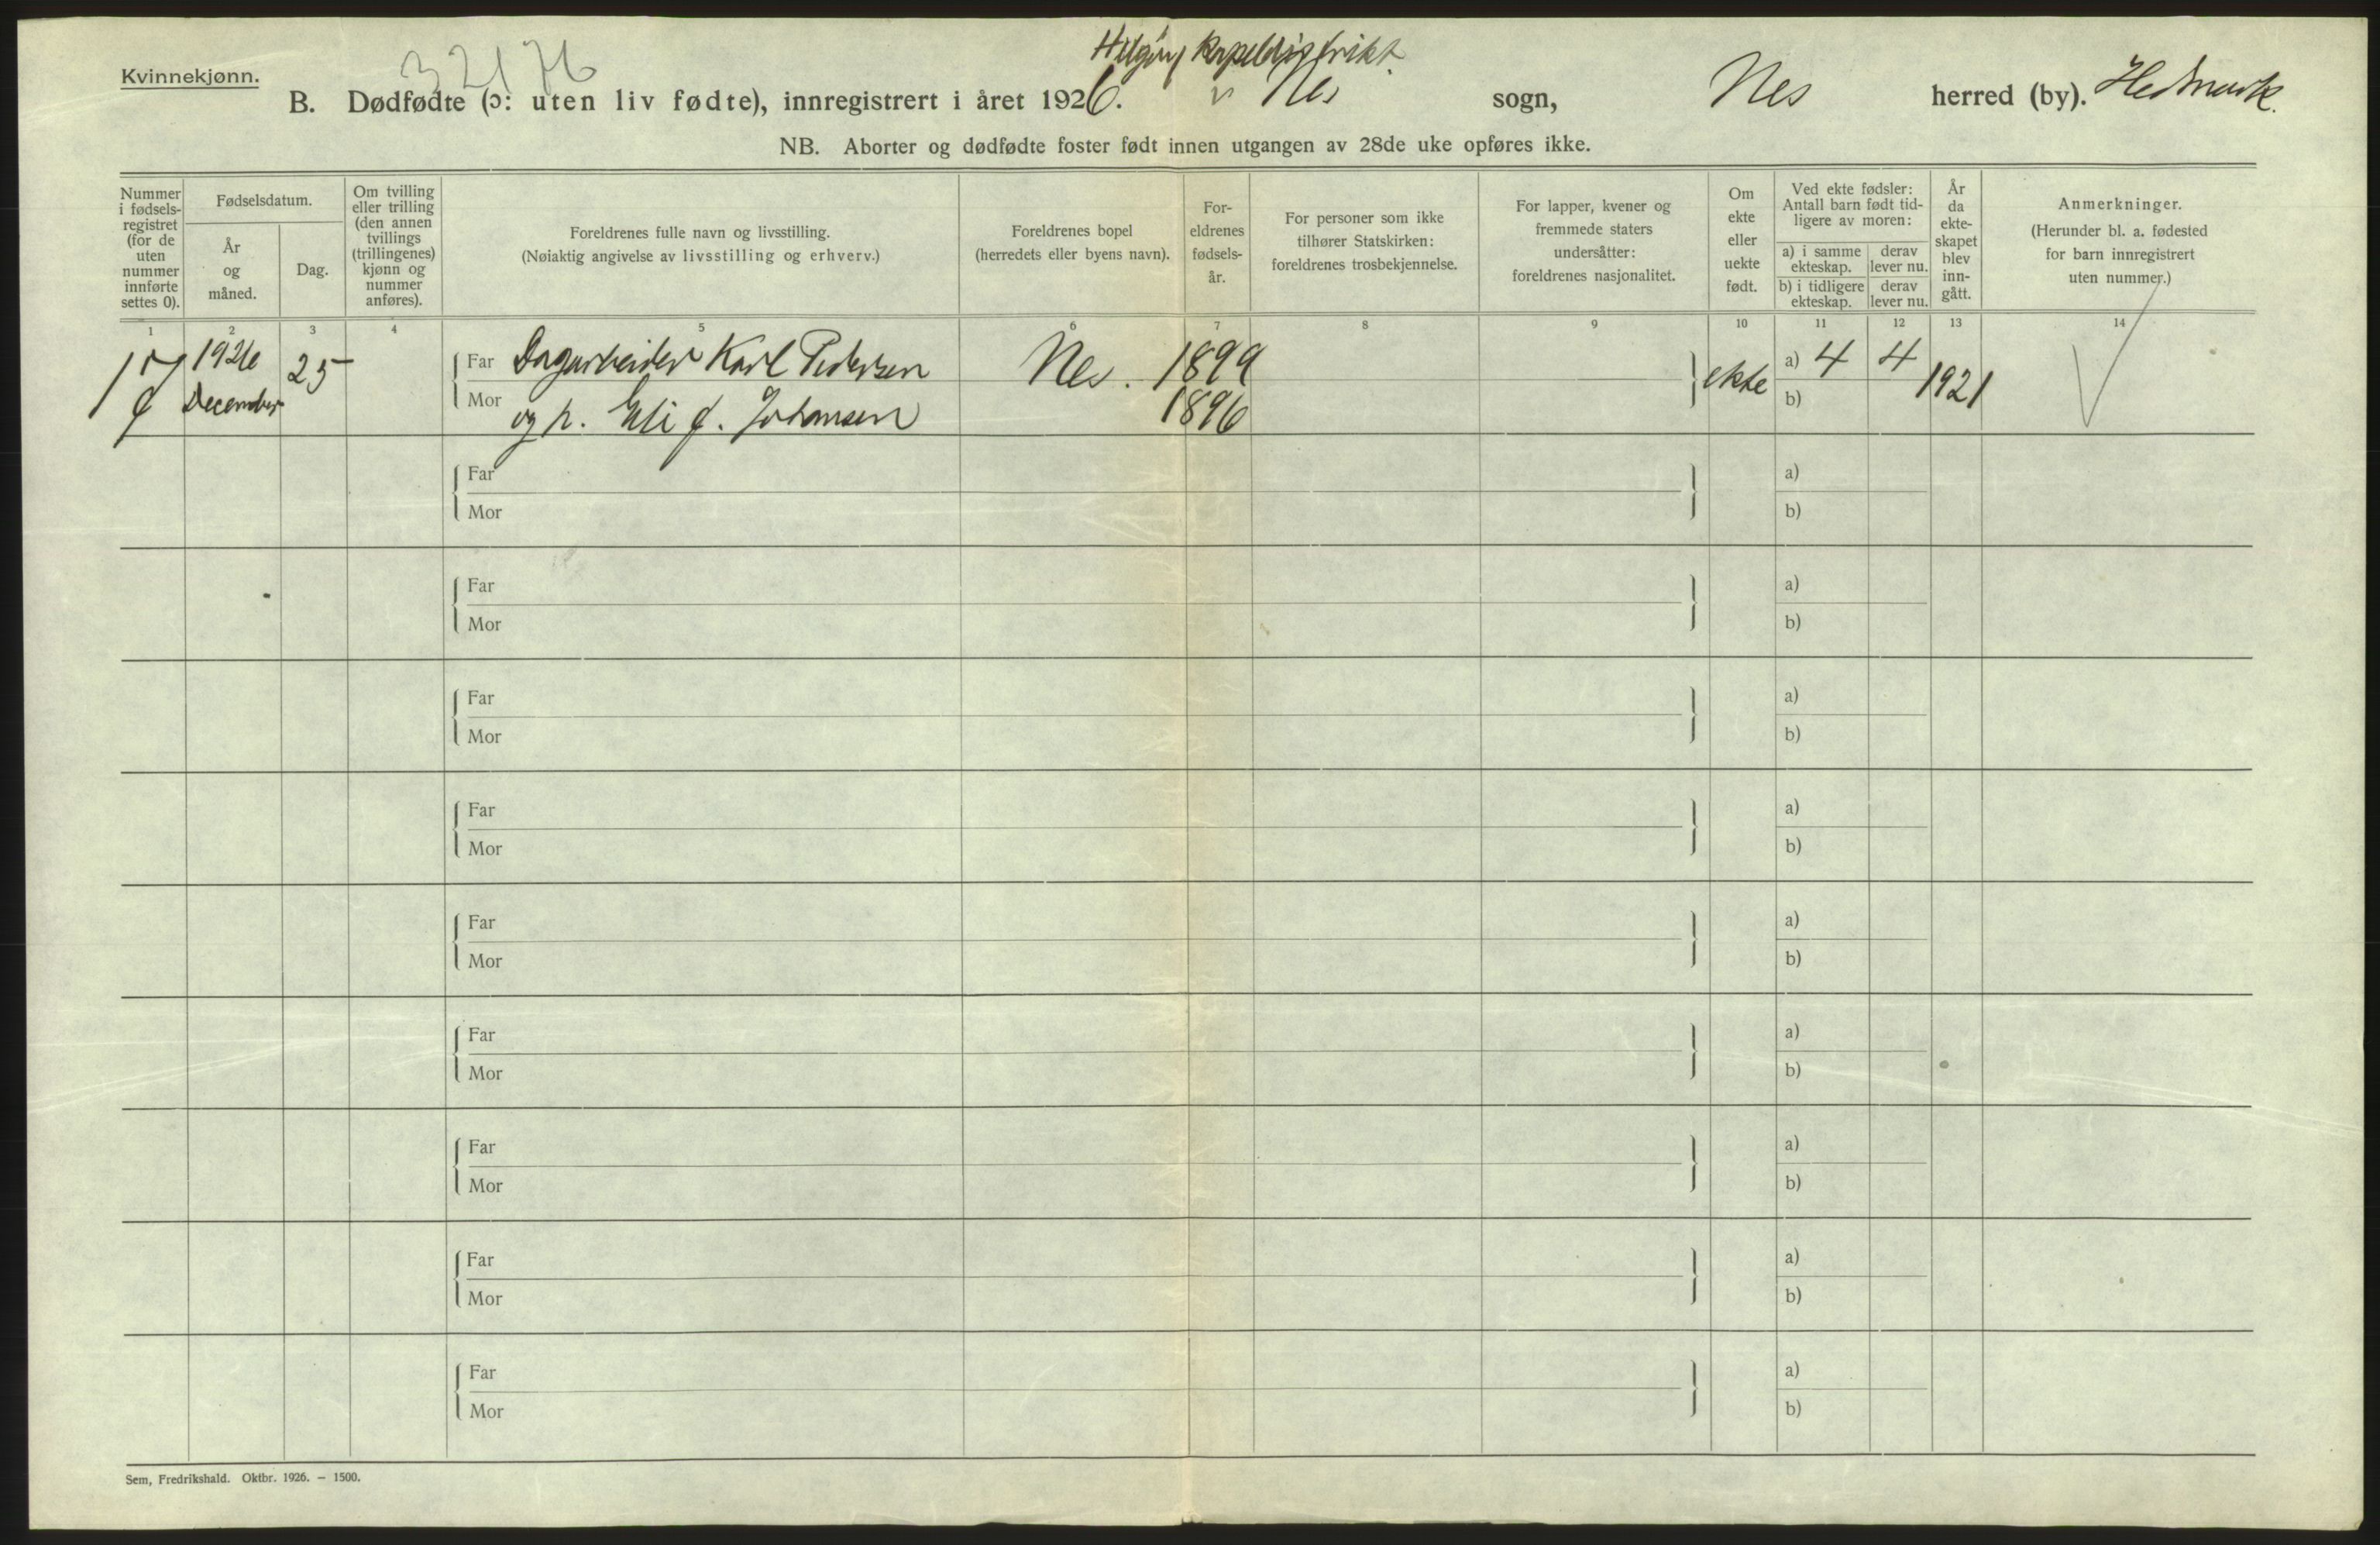 Kvinnekjønn.
32176
Helgøy kapeldistrikt
B. Dødfødte (ɔ: uten liv fødte), innregistrert i året 1926. v Nes sogn, Nes herred (by). Hedmark.
NB. Aborter og dødfødte foster født innen utgangen av 28de uke opføres ikke.
Nummer
i fødsels-
registret
(for de
uten
nummer
innførte
settes 0).
Fødselsdatum.
År
og
måned.
Dag.
Om tvilling
eller trilling
(den annen
tvillings
(trillingenes)
kjønn og
nummer
anføres).
Foreldrenes fulle navn og livsstilling.
(Nøiaktig angivelse av livsstilling og erhverv.)
Foreldrenes bopel
(herredets eller byens navn).
For-
eldrenes
fødsels-
år.
For personer som ikke
tilhører Statskirken:
foreldrenes trosbekjennelse.
For lapper, kvener og
fremmede staters
undersåtter:
foreldrenes nasjonalitet.
Om
ekte
eller
uekte
født.
Ved ekte fødsler:
Antall barn født tid-
ligere av moren:
a) i samme
ekteskap.
derav
lever nu.
b) i tidligere
ekteskap.
derav
lever nu.
År
da
ekte-
skapet
blev
inn-
gått.
Anmerkninger.
(Herunder bl. a. fødested
for barn innregistrert
uten nummer.)
1 2 3 4 5 6 7 8 9 10 11 12 13 14
1926 25 Far Dagarbeider Karl Pedersen Nes. 1899 ekte a) 4 4 1921
December Mor og h. Eli f. Johansen 1896 b)
Far a)
Mor b)
Far a)
Mor b)
Far a)
Mor b)
Far a)
Mor b)
Far a)
Mor b)
Far a)
Mor b)
Far a)
Mor b)
Far a)
Mor b)
Far a)
Mor b)
Sem, Fredrikshald. Oktbr. 1926. – 1500.